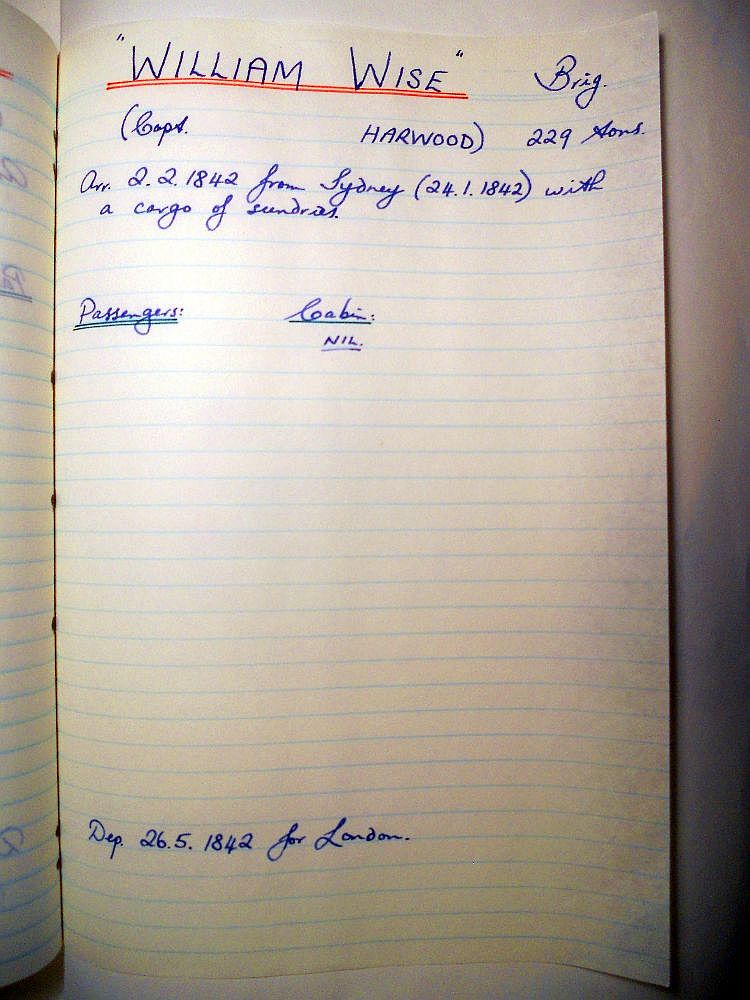 "WILLIAM WISE" Brig.
(Capt. HARWOOD) 229 tons.
Arr. 2.2.1842 from Sydney (24.1.1842) with
a cargo of sundries.
Passengers: Cabin:
NIL.
Dep. 26.5.1842 for London.